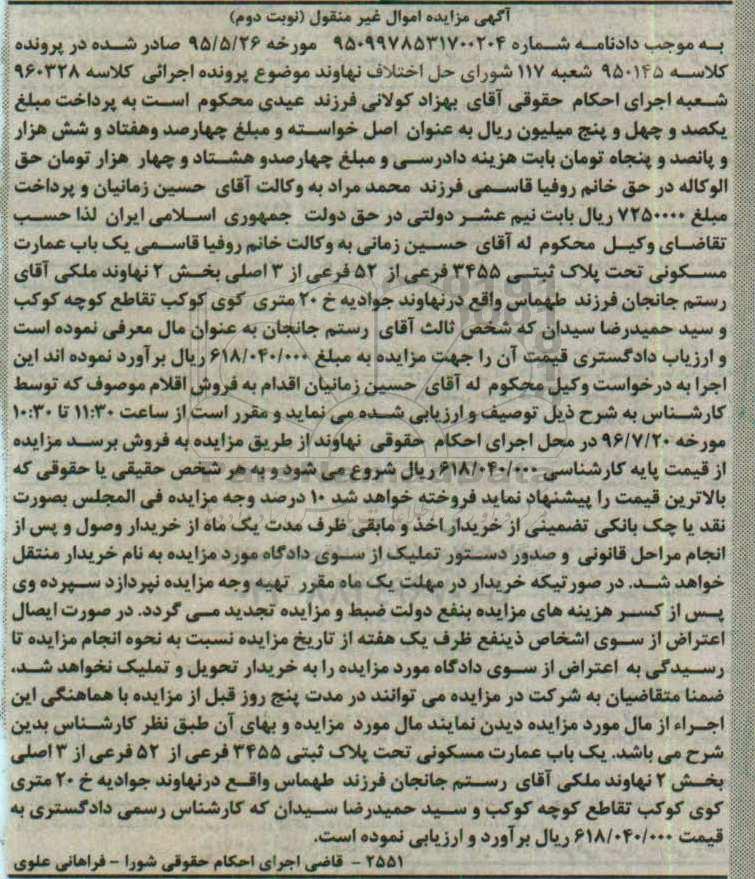 آگهی مزایده اموال غیر منقول (نوبت دوم)
به موجب دادنامه شماره ۹۵۰۹۹۷۸۵۳۱۷۰۰۲۰۴ مورخه ۹۵/۵/۲۶ صادر شده در پرونده
کلاسه ۹۵۰۱۴۵ شعبه ۱۱۷ شورای حل اختلاف نهاوند موضوع پرونده اجرائی کلاسه ۹۶۰۳۲۸
شعبه اجرای احکام حقوقی آقای بهزاد کولانی فرزند عیدی محکوم است به پرداخت مبلغ
یکصد و چهل و پنج میلیون ریال به عنوان اصل خواسته و مبلغ چهارصد وهفتاد و شش هزار
و پانصد و پنجاه تومان بابت هزینه دادرسی و مبلغ چهارصدو هشتاد و چهار هزار تومان حق
الوکاله در حق خانم روفیا قاسمی فرزند محمد مراد به وکالت آقای حسین زمانیان و پرداخت
مبلغ ۷۲۵۰۰۰۰ ریال بابت نیم عشر دولتی در حق دولت جمهوری اسلامی ایران لذا حسب
تقاضای وکیل محکوم له آقای حسین زمانی به وکالت خانم روفیا قاسمی یک باب عمارت
مسکونی تحت پلاک ثبتی ۳۴۵۵ فرعی از ۵۲ فرعی از ۳ اصلی بخش ۲ نهاوند ملکی آقای
رستم جانجان فرزند طهماس واقع درنهاوند جوادیه خ ۲۰ متری کوی کوکب تقاطع کوچه کوکب
و سید حمیدرضا سیدان که شخص ثالث آقای رستم جانجان به عنوان مال معرفی نموده است
و ارزیاب دادگستری قیمت آن را جهت مزایده به مبلغ ۶۱۸/۰۴۰/۰۰۰ ریال برآورد نموده اند این
اجرا به درخواست وکیل محکوم له آقای حسین زمانیان اقدام به فروش اقلام موصوف که توسط
کارشناس به شرح ذیل توصیف و ارزیابی شده می نماید و مقرر است از ساعت ۱۱:۳۰ تا ۱۰:۳۰
مورخه ۹۶/۷/۲۰ در محل اجرای احکام حقوقی نهاوند از طریق مزایده به فروش برسد مزایده
از قیمت پایه کارشناسی ۶۱۸/۰۴۰/۰۰۰ ریال شروع می شود و به هر شخص حقیقی یا حقوقی که
بالاترین قیمت را پیشنهاد نماید فروخته خواهد شد ۱۰ درصد وجه مزایده فی المجلس بصورت
نقد یا چک بانکی تضمینی از خریدار اخذ و مابقی ظرف مدت یک ماه از خریدار وصول و پس از
انجام مراحل قانونی و صدور دستور تملیک از سوی دادگاه مورد مزایده به نام خریدار منتقل
خواهد شد. در صورتیکه خریدار در مهلت یک ماه مقرر تهیه وجه مزایده نپردازد سپرده وی
پس از کسر هزینه های مزایده بنفع دولت ضبط و مزایده تجدید می گردد. در صورت ایصال
اعتراض از سوی اشخاص ذینفع ظرف یک هفته از تاریخ مزایده نسبت به نحوه انجام مزایده تا
رسیدگی به اعتراض از سوی دادگاه مورد مزایده را به خریدار تحویل و تملیک نخواهد شد.
ضمنا متقاضیان به شرکت در مزایده می توانند در مدت پنج روز قبل از مزایده با هماهنگی این
اجراء از مال مورد مزایده دیدن نمایند مال مورد مزایده و بهای آن طبق نظر کارشناس بدین
شرح می باشد. یک باب عمارت مسکونی تحت پلاک ثبتی ۳۴۵۵ فرعی از ۵۲ فرعی از ۳ اصلی
بخش ۲ نهاوند ملکی آقای رستم جانجان فرزند طهماس واقع درنهاوند جوادیه خ ۲۰ متری
کوی کوکب تقاطع کوچه کوکب و سید حمیدرضا سیدان که کارشناس رسمی دادگستری به
قیمت ۶۱۸/۰۴۰/۰۰۰ ریال برآورد و ارزیابی نموده است.
۲۵۵۱ - قاضی اجرای احکام حقوقی شورا - فراهانی علوی